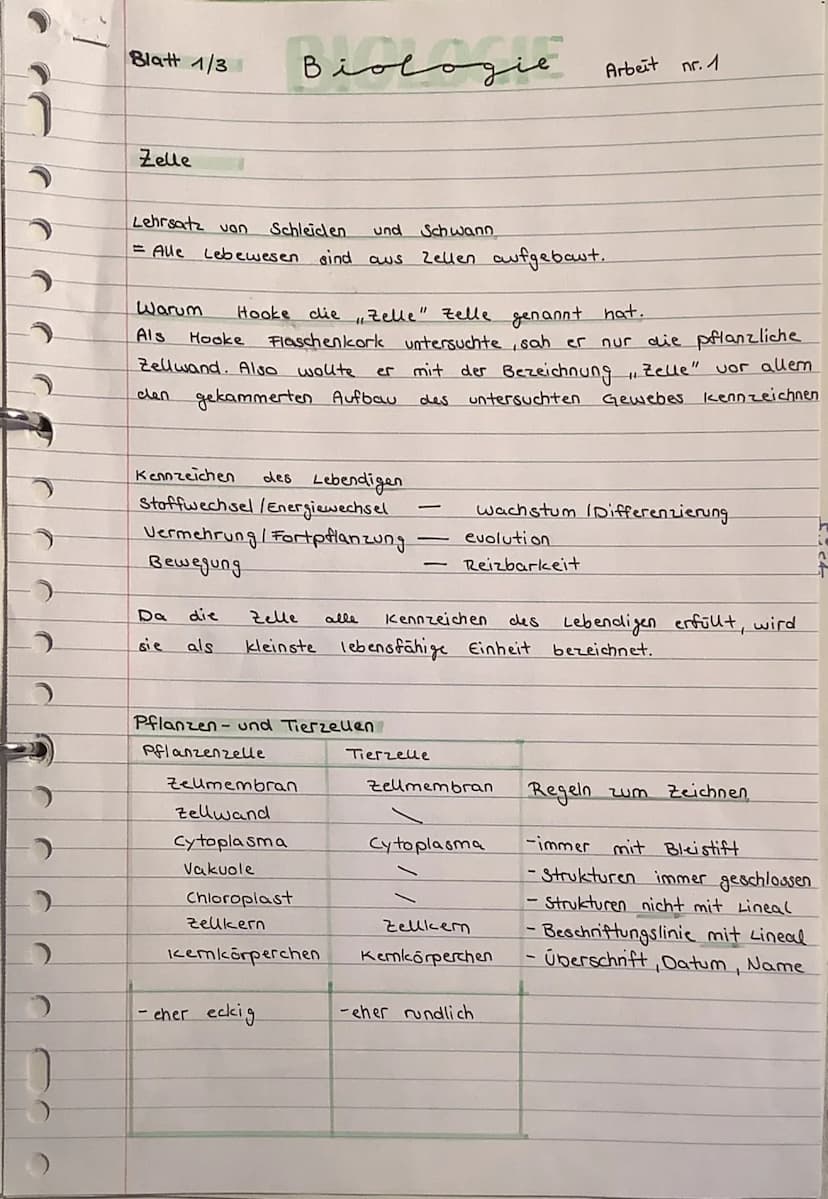 Blatt 1/3 BIOLOGIE Biologie Arbeit nr. 1
Zelle
Lehrsatz von Schleiden und Schwann
= Alle Lebewesen sind aus Zellen aufgebaut.
Warum Hooke die „Zelle" Zelle genannt hat.
Als Hooke Flaschenkork untersuchte, sah er nur die pflanzliche
Zellwand. Also wollte er mit der Bezeichnung „Zelle" vor allem
den gekammerten Aufbau des untersuchten Gewebes kennzeichnen
Kennzeichen des Lebendigen
Stoffwechsel/Energiewechsel — Wachstum/Differenzierung
Vermehrung/Fortpflanzung — evolution
Bewegung — Reizbarkeit
Da die Zelle alle Kennzeichen des Lebendigen erfüllt, wird
sie als kleinste lebensfähige Einheit bezeichnet.
Pflanzen- und Tierzellen
Pflanzenzelle Tierzelle
Zellmembran Zellmembran Regeln zum Zeichnen
Zellwand \
Cytoplasma Cytoplasma -immer mit Bleistift
Vakuole \ - Strukturen immer geschlossen
Chloroplast \ - Strukturen nicht mit Lineal
Zellkern Zellkern - Beschriftungslinie mit Lineal
Kernkörperchen Kernkörperchen - Überschrift, Datum, Name
- eher eckig - eher rundlich